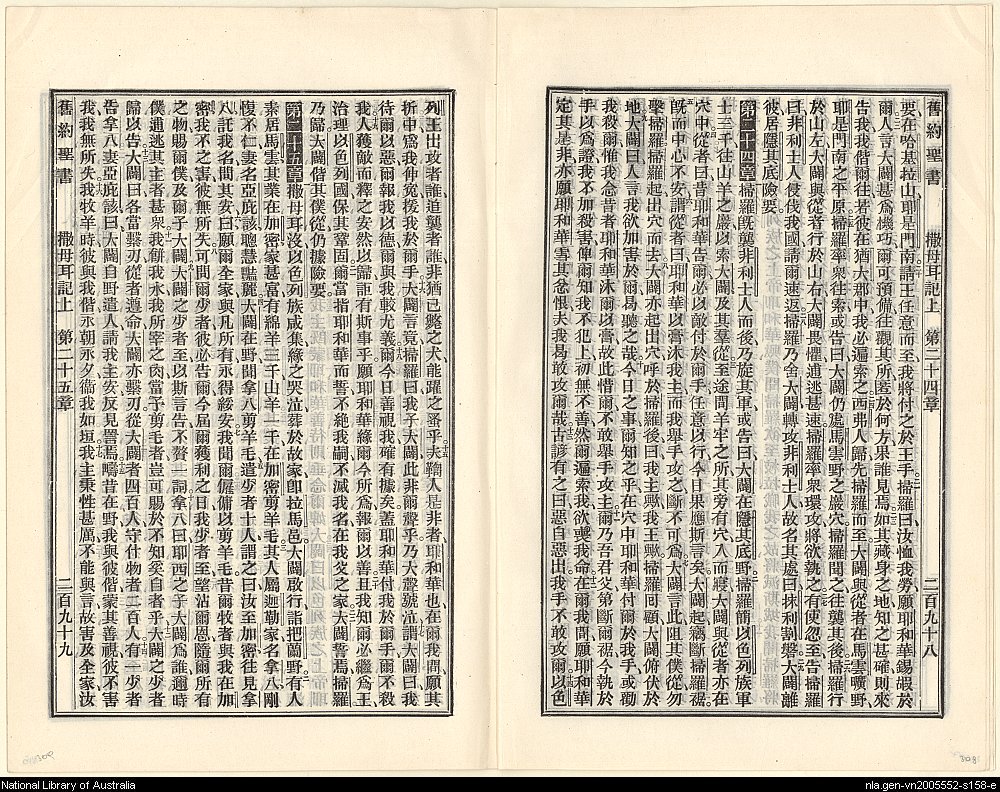 舊約聖書　撒母耳記上　第二十四章　二百九十八
要在哈基拉山耶是門南請王任意而至我將付之於王手掃羅曰汝恤我勞願耶和華錫嘏於
爾人言大闢甚爲機巧爾可預備往觀其所惹於何方果誰見焉如其藏身之地知之甚確則來
告我我偕爾往若彼在猶大郡中我必遍索之西弗人歸先掃羅而至大闢與從者在馬雲曠野
耶是門南之平原掃羅率從者往索或告曰大闢仍處馬雲野之巖穴掃羅聞之往襲其後掃羅行
於山左大闢與從者行於山右大闢畏懼遁逃甚速掃羅率衆環攻將欲執之有使忽至告掃羅
曰非利士人侵伐我國請爾速返掃羅乃舍大闢轉攻非利士人故名其處曰抹利割磐大闢離
彼居隱其底險要
第二十四章掃羅旣襲非利士人而後乃旋其軍或告曰大闢在隱其底野掃羅簡以色列族軍
士三千往山羊之巖以索大闢及其羣從至途間羊牢之所其旁有穴入而寢大闢與從者亦在
穴中從者曰昔耶和華告爾必以敵付於爾手任意以行今日果應斯言矣大闢起竊斷掃羅裾
旣而中心不安謂從者曰耶和華以膏沐我主而我舉手攻之斷不可爲大闢言此阻其僕從勿
擊掃羅掃羅起出穴而去大闢亦起出穴呼於掃羅後曰我主歟我王歟掃羅回顧大闢俯伏於
地大闢曰人言我欲加害於爾曷聽之哉今日之事爾知之乎在穴中耶和華付爾於我手或勸
我殺爾惟我念昔者耶和華沐爾以膏故此惜爾不敢舉手攻主爾乃吾君父第斷爾裾今執於
手以爲證我不加殺害俾爾知我不犯上初無不善然爾遍索我欲戕我命在爾與我間願耶和華
定其是非亦願耶和華雪其忿恨夫我曷敢攻爾哉古諺有之曰惡自惡出我手不敢攻爾以色
列王出攻者誰追襲者誰非猶已斃之犬能躍之蚤乎夫鞫人是非者耶和華也在爾我間願其
折中爲我伸寃援我於爾手大闢言竟掃羅曰我子大闢此非爾聲乎乃大聲號泣謂大闢曰我
待爾以惡爾報我以德爾與我較尤義爾今日善視我確有據矣蓋耶和華付我於爾手爾不殺
我人獲敵而釋之安然以歸詎有斯事乎願耶和華緣爾今所爲報爾以善且我知爾必繼爲王
治理以色列國保其鞏固爾當指耶和華而誓不絕我嗣不滅我名在我父之家大闢誓焉掃羅
乃歸大闢偕其僕從仍據險要
第二十五章撒母耳沒以色列族咸集緣之哭泣葬於故家卽拉馬邑大闢啟行詣把蘭野有人
素居馬雲其業在加密家甚富有綿羊三千山羊一千在加密剪羊毛其人屬迦勒家名拿八剛
愎不仁妻名亞庇該聰慧豔麗大闢在野聞拿八剪羊毛遣少者十人謂之曰汝至加密往見拿
八託我名問其安曰願爾全家與凡所有永得綏安我聞爾僱傭以剪羊毛昔爾牧者與我在加
密我不之害彼無所失可問爾少者彼必告爾今屆爾獲利之日我少者至望沾爾恩隨爾所有
之物賜爾僕及爾子大闢大闢之少者至以斯言告不贅一詞拿八曰耶西之子大闢爲誰邇時
僕遁逃其主者甚衆我餅我水我所宰之肉當予剪毛者豈可賜於不知奚自者乎大闢之少者
歸以告大闢曰各當繫刃從者遵命大闢亦繫刃從大闢者四百人守什物者二百人有一少者
告拿八妻亞庇該曰大闢自野遣人請我主安反見詈焉疇昔在野我與彼偕蒙其善視彼不害
我我無所失我牧羊時彼與我偕永朝永夕衞我如垣我主秉性甚厲不能與言故害及全家汝
舊約聖書　撒母耳記上　第二十五章　二百九十九
National Library of Australia
nla.gen-vn2005552-s158-e